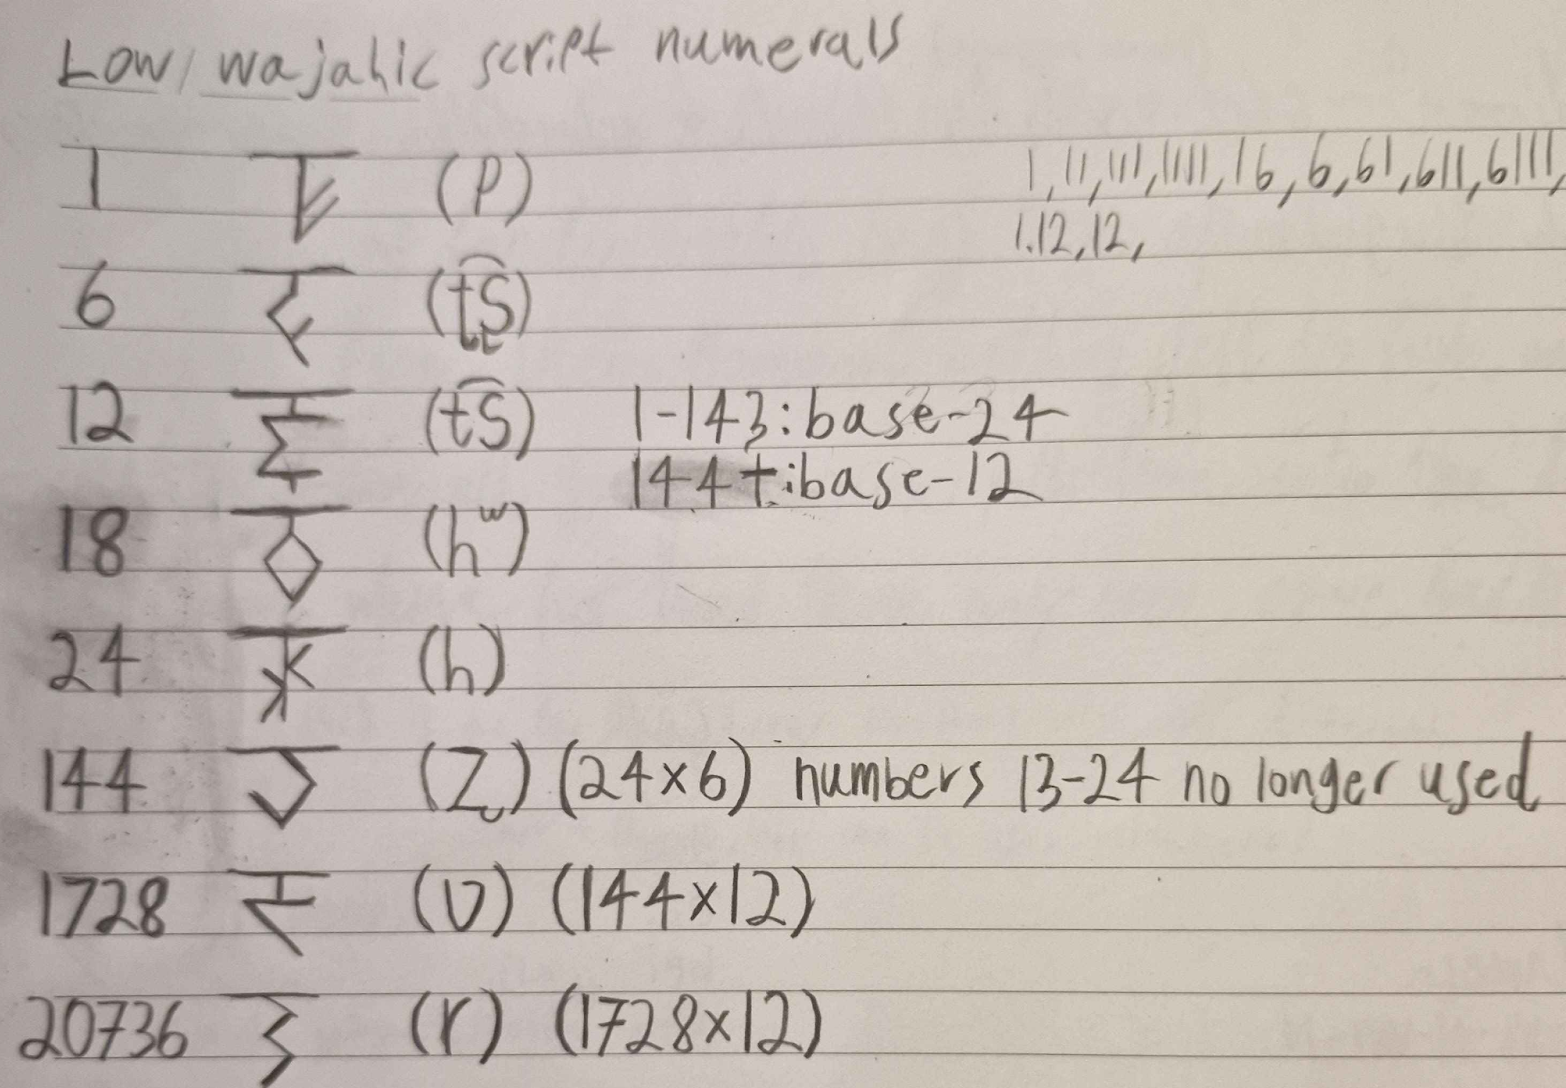 Low, wajahic script numerals
1 (p) 1, 11, 111, 1111, 16, 6, 61, 611, 6111,
1.12, 12,
6 (t͡s)
12 (t͡s) 1-143: base-24
144+: base-12
18 (hʷ)
24 (h)
144 (24×6) numbers 13-24 no longer used
1728 (ʋ) (144×12)
20736 (r) (1728×12)